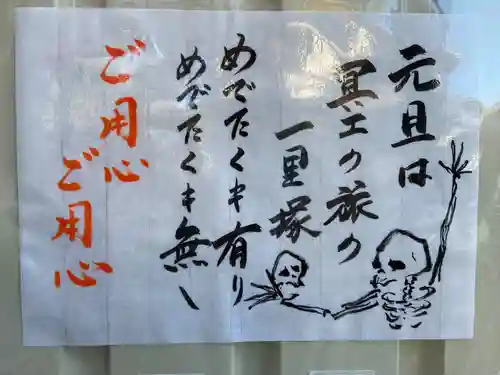 元旦は
冥土の旅の
一里塚
めでたくも有り
めでたくも無し
ご用心
ご用心